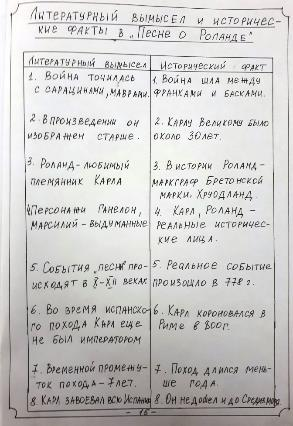 Литературный вымысел и историчес-
кие факты в "Песне о Роланде"
Литературный вымысел
Исторический факт
1. Война точилась
с сарацинами, маврами.
1. Война шла между
франками и басками.
2. В произведении он
изображен старше.
2. Карлу Великому было
около 30 лет.
3. Роланд - любимый
племянник Карла
3. В истории Роланд -
маркграф Бретонской
марки, Хруодланд.
4. Персонажи Ганелон,
Марсилий - выдуманные
4. Карл, Роланд -
реальные историчес-
кие лица.
5. События „песни" про-
исходят в X-XII веках
5. Реальное событие
произошло в 778 г.
6. Во время испанско-
го похода Карл еще
не был императором
6. Карл короновался в
Риме в 800 г.
7. Временной промежу-
ток похода - 7 лет.
7. Поход длился мень-
ше года.
8. Карл завоевал всю Испанию
8. Он не дошел и до
- 16 -